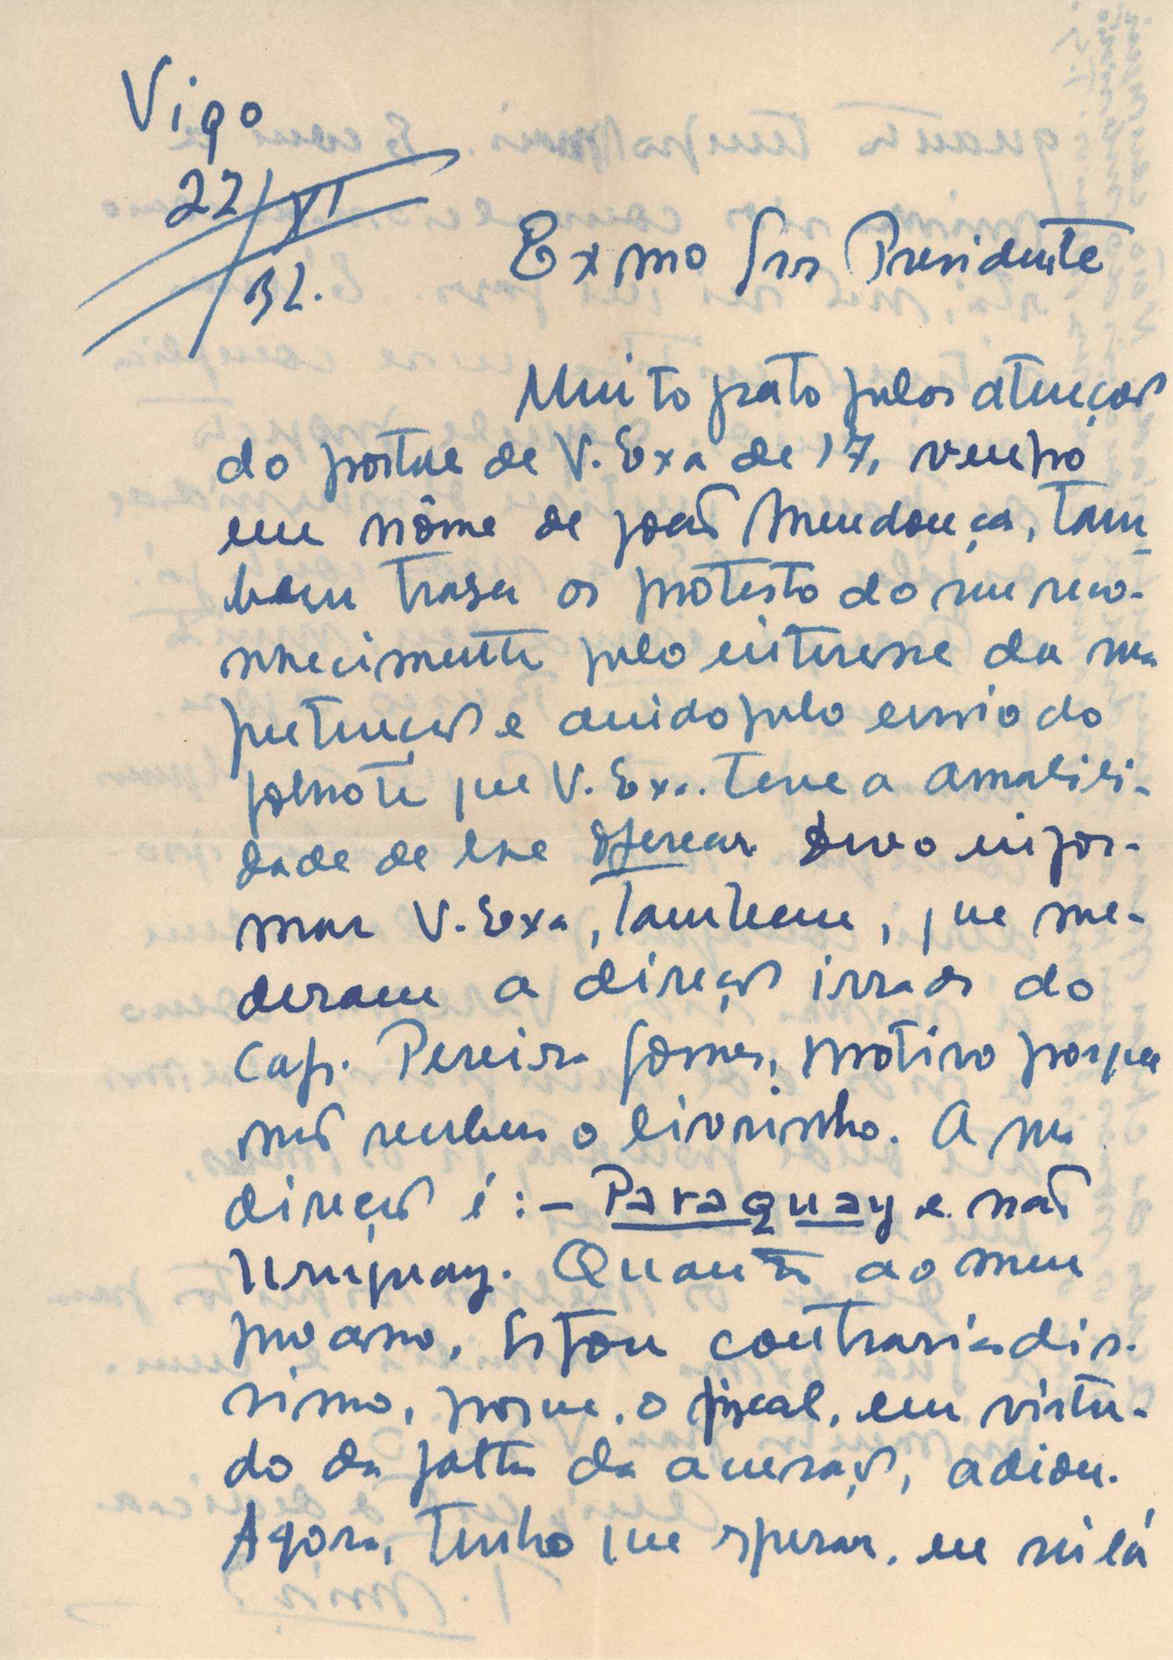 Vigo
22/VI
32.
Exmo Snr Presidente
Muito grato pelas atenções
do postal de V. Exa de 17, venho
em nôme de João Mendonça, tam
bem trazer os protesto do seu reco-
nhecimento pelo interesse da sua
pretenção e ainda pelo envio do
folhoto que V. Exa. teve a amabili-
dade de lhe oferecer Devo infor-
mar V. Exa, tambem, que me-
deram a direção irrada do
Cap. Pereira Gomes, motivo porque
não recebeu o livrinho. A sua
direção é: – Paraguay e não
Uruguay. Quanto ao meu
processo, Estou contrariadis-
simo, porque, o fiscal, em virtu-
do da falta da acusação, adiou.
Agora, tenho que esperar, eu sei lá